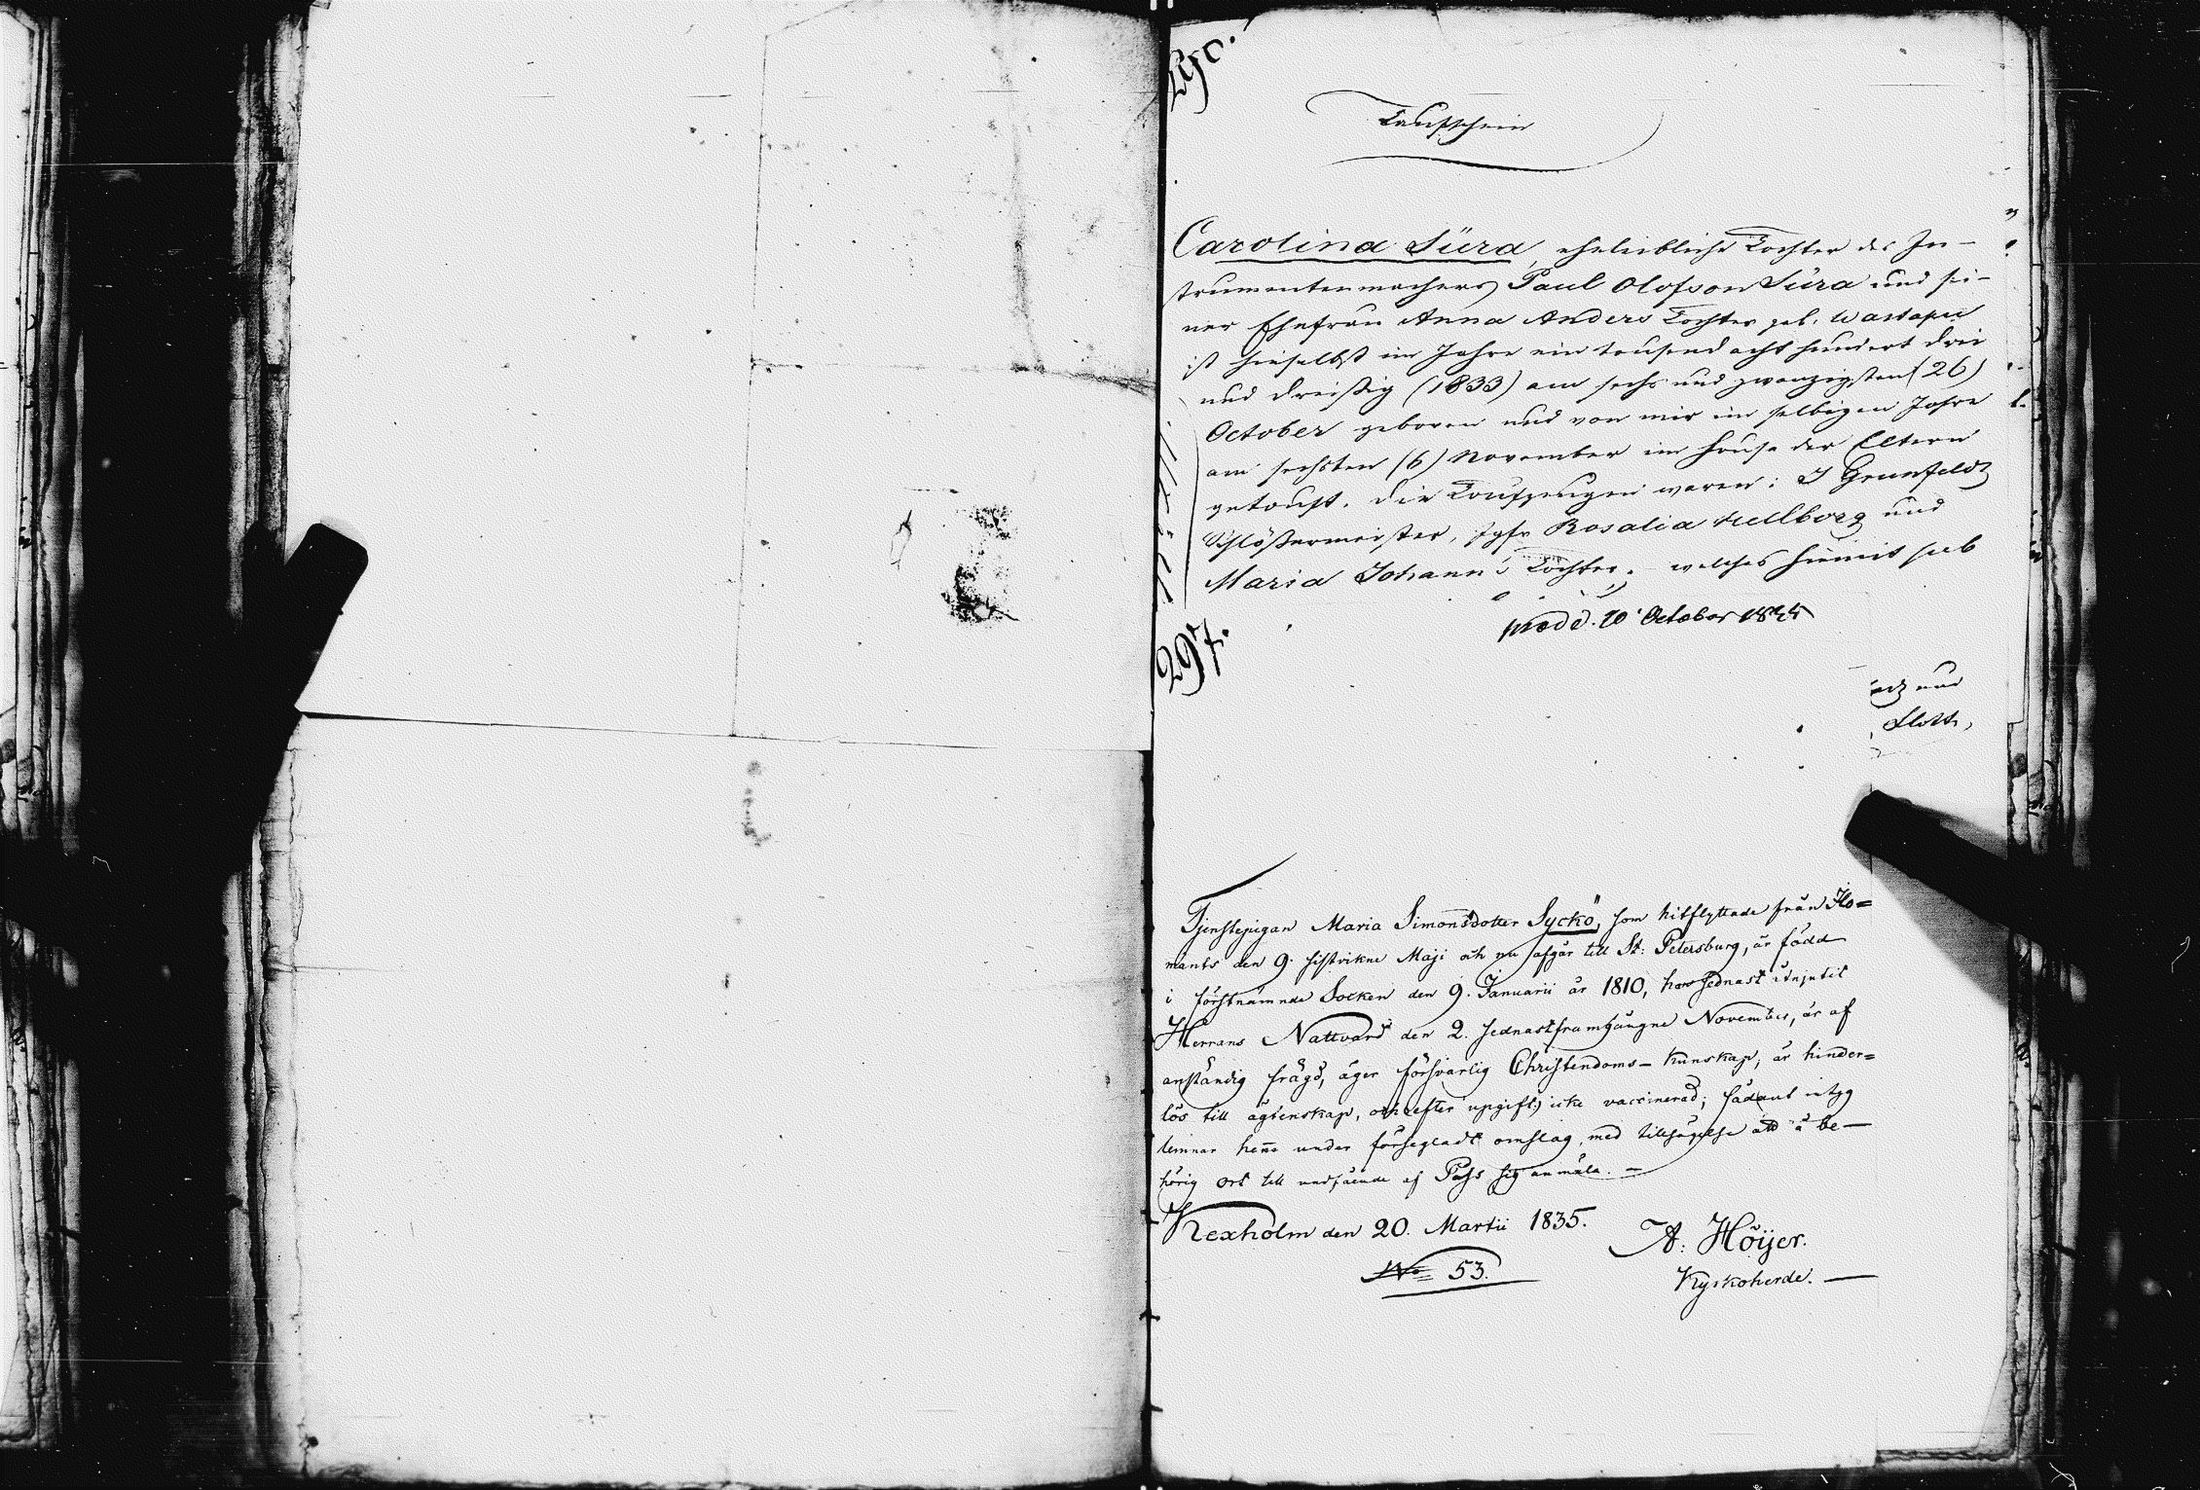 290.
Taufschein
Carolina Süra, eheleibliche Tochter des In-
strumentenmachers Paul Olofson Süra und sei-
ner Ehefrau Anna Anders Tochter geb.
ist hieselbst im Jahre ein tausend acht hundert drei
und dreißig (1833) am sechs und zwanzigsten (26)
October geboren und von mir im selbigen Jahre
am sechsten (6) November im Hause der Eltern
getauft. Die Taufzeugen waren: J Grunfeldt
Schlößermeister, Jgfr Rosalia Hellborg und
Maria Johann's Tochter; welches hiemit sub
10 October
297.
und
Slott,
Tjenstepigan Maria Simonsdotter Syckö, som hitflyttade från Ilo=
mants den 9. sistvikne Maji och nu afgår till St: Petersburg, är född
i förstnämnde Socken den 9. Januarii år 1810, har sednast
Herrans Nattvard den 2. sednastframgångne November, är af
anständig frägd, äger försvarlig Christendoms-kunskap, är hinder=
lös till ägtenskap, och efter upgift, icke vaccinerad; sådant intyg
lemnar henne under försegladt omslag, med tillsägelse att å be-
hörig ort till undfående af Pass sig anmäla. -
Kexholm den 20. Martii 1835.
A: Höijer.
No 53.
Kyrkoherde. -